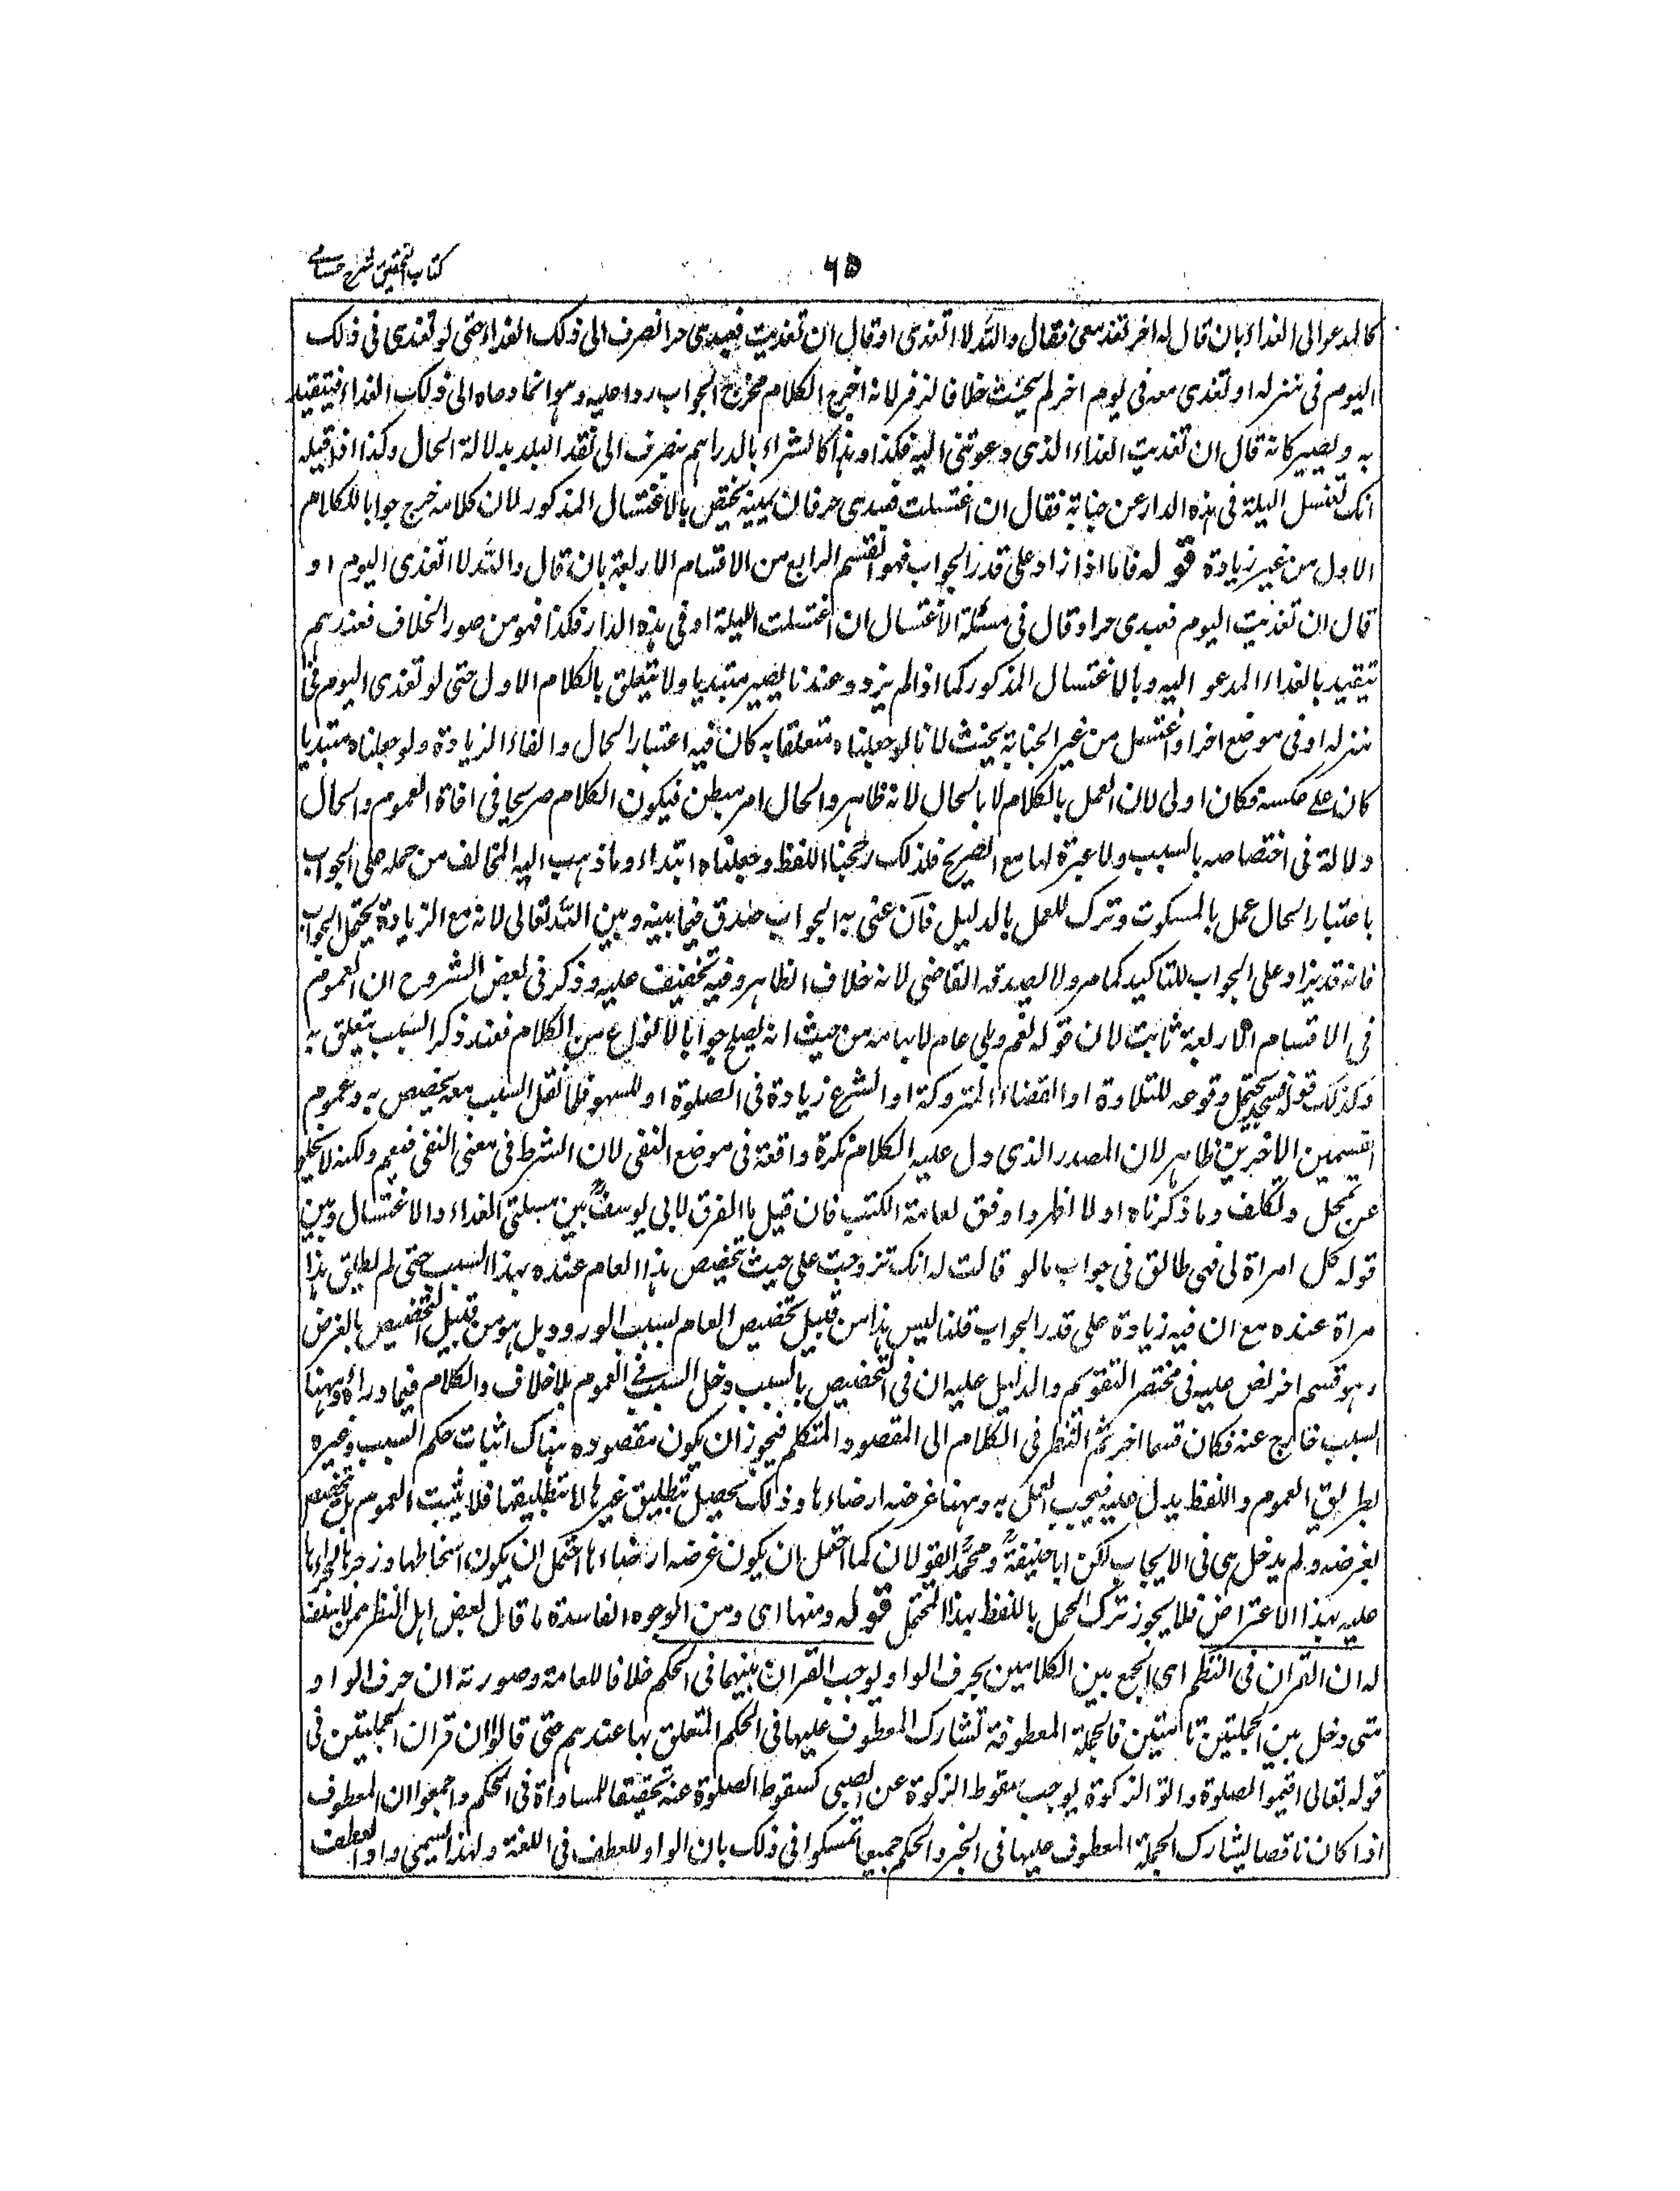 كتاب التحقيق شرح حسامي
٦٥
كالمدعو الى الغداء بان قال له اخر تغد معي فقال والله لا اتغدى او قال ان تغديت فعبدي حر انصرف الى ذلك الغداء حتى لو تغدى في ذلك
اليوم في منزله او تغدى معه في يوم اخر لم يحنث خلافا لزفر لانه اخرج الكلام مخرج الجواب ردا عليه وهو انما دعاه الى ذلك الغداء فيتقيد
به ويصير كانه قال ان تغديت الغداء الذي دعوتني اليه فكذا وهذا كالشراء بالدراهم ينصرف الى نقد البلد بدلالة الحال وكذا اذا قيل له
انك تغتسل الليلة في هذه الدار عن جنابة فقال ان اغتسلت فعبدي حر فان يمينه يختص بالاغتسال المذكور لان كلامه خرج جوابا للكلام
الاول من غير زيادة قوله فاما اذا زاد على قدر الجواب فهو القسم الرابع من الاقسام الاربعة بان قال والله لا اتغدى اليوم او
قال ان تغديت اليوم فعبدي حر او قال في مسئلة الاغتسال ان اغتسلت الليلة او في هذه الدار فكذا فهو من صور الخلاف فعندهم
يتقيد بالغداء المدعو اليه وبالاغتسال المذكور كما اذا لم يزد وعندنا يصير مبتديا ولا يتعلق بالكلام الاول حتى لو تغدى اليوم في
منزله او في موضع اخر او اغتسل من غير الجنابة يحنث لانا لو جعلناه متعلقا به كان فيه اعتبار الحال والغاء الزيادة ولو جعلناه مبتديا
كان على عكسه فكان اولى لان العمل بالكلام لا بالحال لانه ظاهر والحال امر مبطن فيكون الكلام صريحا في افادة العموم والحال
دلالة في اختصاصه بالسبب ولا عبرة لها مع الصريح فلذلك رجحنا اللفظ وجعلناه ابتداء وما ذهب اليه المخالف من حمله على الجواب
باعتبار الحال عمل بالمسكوت وترك للعمل بالدليل فان عنى به الجواب صدق فيما بينه وبين الله تعالى لانه مع الزيادة يحتمل الجواب
فانه قد يزاد على الجواب للتاكيد كما مر ولا يصدقه القاضي لانه خلاف الظاهر وفيه تخفيف عليه وذكر في بعض الشروح ان العموم
في الاقسام الاربعة ثابت لان قوله نعم وبلى عام لابهامه من حيث انه يصلح جوابا لانواع من الكلام فعند ذكر السبب يتعلق به
وكذلك قوله فسجد يحتمل وقوعه للتلاوة او القضاء المتروكة او الشرع زيادة في الصلوة او للسهو فلما نقل السبب معه يخصص به وعموم
القسمين الاخرين ظاهر لان المصدر الذي دل عليه الكلام نكرة واقعة في موضع النفي لان الشرط في معنى النفي فتعم ولكنه لا يخلو
عن تمحل وتكلف وما ذكرناه اولا اظهر واوفق لعامة الكتب فان قيل ما الفرق لابي يوسف بين مسئلتي الغداء والاغتسال وبين
قوله كل امراة لي فهي طالق في جواب ما لو قالت له انك تزوجت علي حيث تخصيص هذا العام عنده بهذا السبب حتى لم يطلق هذا
مراة عنده مع ان فيه زيادة على قدر الجواب قلنا ليس هذا من قبيل تخصيص العام بسبب الورود بل هو من قبيل التخصيص بالغرض
وهو قسم اخر نص عليه في مختصر التقويم والدليل عليه ان في التخصيص بالسبب دخل السبب في العموم بلا خلاف والكلام فيما وراءه وههنا
السبب خارج عنه فكان قسما اخر ثم النظر في الكلام الى المقصود المتكلم فيجوز ان يكون مقصوده هناك اثبات حكم السبب وغيره
بطريق العموم واللفظ يدل عليه فيجب العمل به وههنا غرضه ارضاءها وذلك تحصيل تطليق غيرها لا بتطليقها فلا يثبت العموم بل تخصيص
بغرضه ولم يدخل هي في الايجاب لكن ابا حنيفة ومحمدا يقولان كما احتمل ان يكون غرضه ارضاءها احتمل ان يكون اسخاطها وزجرها لاجراءها
عليه بهذا الاعتراض فلا يجوز ترك العمل باللفظ بهذا المحتمل قوله ومنها اي ومن الوجوه الفاسدة ما قال بعض اهل النظر ممن لا سلف
له ان القران في النظم اي الجمع بين الكلامين بحرف الواو يوجب القران بينهما في الحكم خلافا للعامة وصورته ان حرف الواو
متى دخل بين الجملتين تامتين فالجملة المعطوفة تشارك المعطوف عليها في الحكم المتعلق بها عندهم حتى قالوا ان قران الجملتين في
قوله تعالى اقيموا الصلوة واتوا الزكوة يوجب سقوط الزكوة عن الصبي كسقوط الصلوة عنه تحقيقا للمساواة في الحكم واجمعوا ان المعطوف
اذا كان ناقصا يشارك الجملة المعطوف عليها في الخبر والحكم جميعا تمسكوا في ذلك بان الواو للعطف في اللغة ولهذا يسمى واو العطف